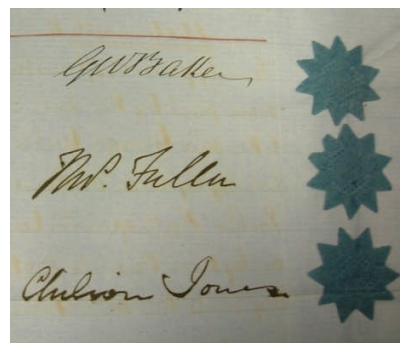 GWBaker
Thos. Fuller
Chilion Jones